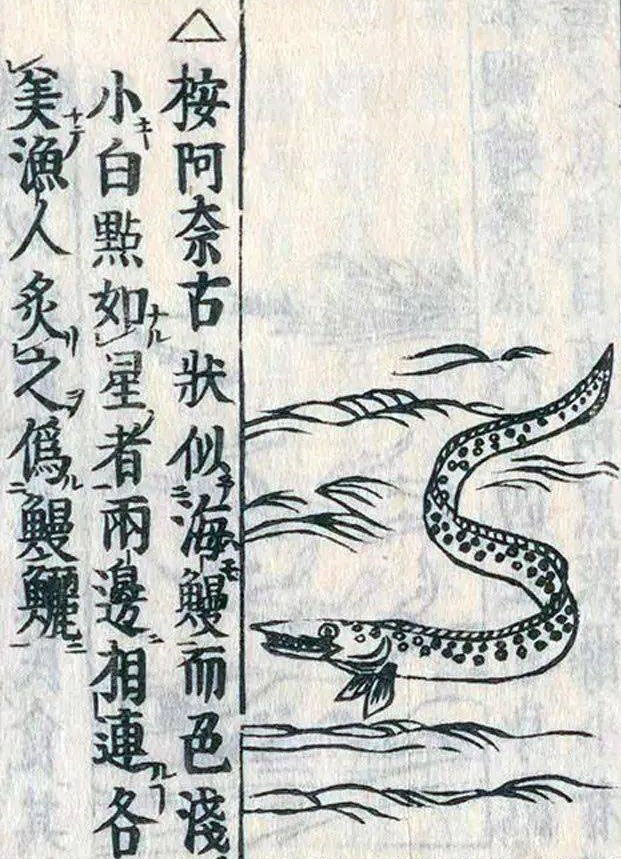 △桉阿奈古狀似海鰻而色淺
小白點如星者兩邊相連各
美漁人炙之僞鰻鱺